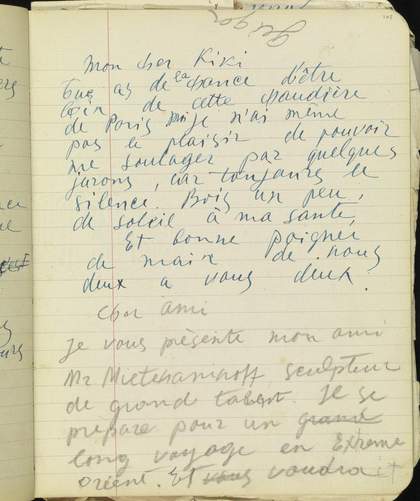 Mon cher Kiki
Tu as de la chance d'être
loin de cette chaudière
de Paris je n'ai même
pas le plaisir de pouvoir
me soulager par quelques
jurons, car toujours le
silence. Bois un peu,
de soleil à ma santé,
Et bonne poigner
de main de nous
deux a vous deux.
Cher ami
Je vous présente mon ami
Mr Mietchaninoff sculpteur
de grand talent. Je se
prepare pour un grand
long voyage en Extreme
orient. Et vous voudrait